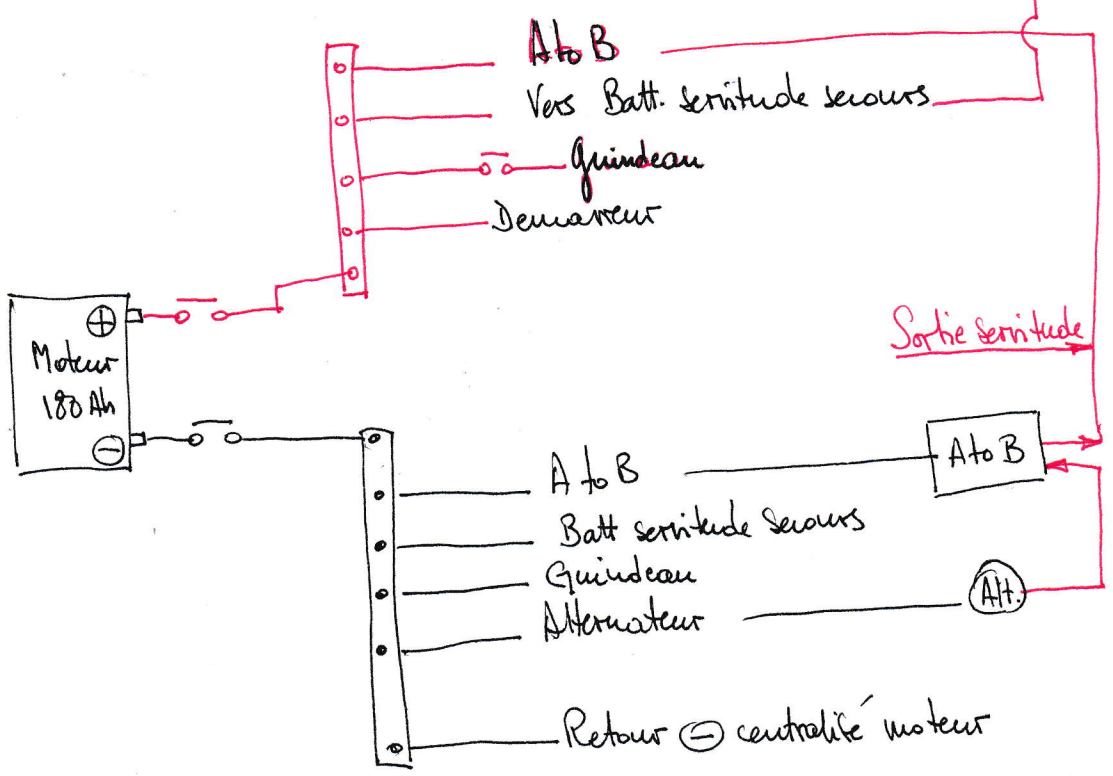 A to B
Vers Batt. servitude secours
Guindeau
Demarreur
+
Moteur
180 Ah
-
Sortie servitude
A to B
A to B
Batt servitude secours
Guindeau
Alternateur
Alt.
Retour - centralisé moteur